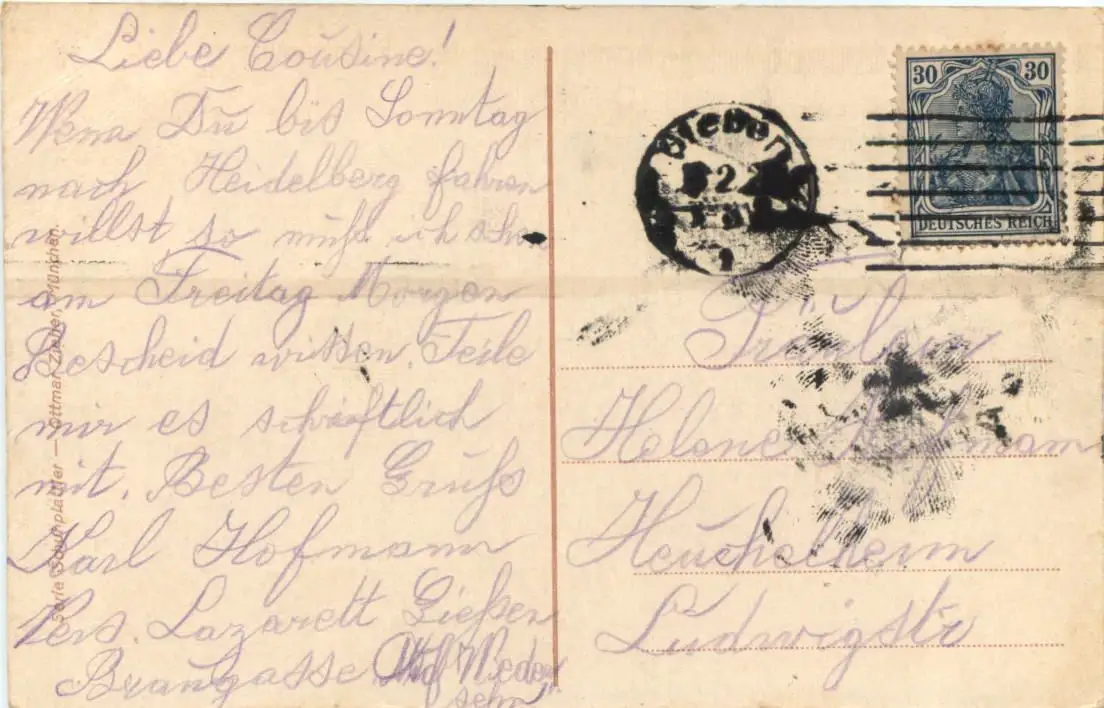 Liebe Cousine!
Wenn Du bis Sonntag
nach Heidelberg fahren
willst so muß ich schon
am Freitag Morgen
Bescheid wissen. Teile
mir es schriftlich
mit. Besten Gruß
Karl Hofmann
Lazarett Gießen
Braugasse Auf Wieder
sehn"
Serie Schuhplattler — Ottmar Zieher, München.
30 30
DEUTSCHES REICH
Fräulein
Helene Hofmann
Heuchelheim
Ludwigstr